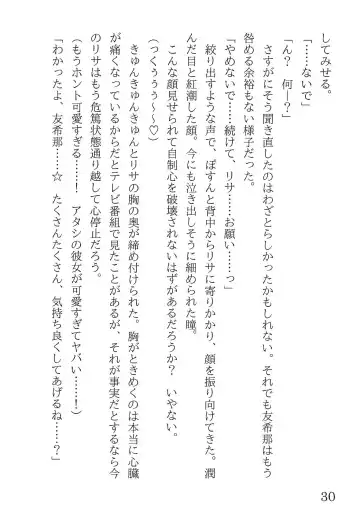 してみせる。
「……ないで」
「ん？　何ー？」
さすがにそう聞き直したのはわざとらしかったかもしれない。それでも友希那はもう
咎める余裕もない様子だった。
「やめないで……続けて、リサ……お願い……っ」
絞り出すような声で、ぽすんと背中からリサに寄りかかり、顔を振り向けてきた。潤
んだ目と紅潮した顔。今にも泣き出しそうに細められた瞳。
こんな顔見せられて自制心を破壊されないはずがあるだろうか？　いやない。
（っくぅぅぅ～～♡）
きゅんきゅんきゅんとリサの胸の奥が締め付けられた。胸がときめくのは本当に心臓
が痛くなっているからだとテレビ番組で見たことがあるが、それが事実だとするなら今
のリサはもう危篤状態通り越して心停止だろう。
（もうホント可愛すぎる……！　アタシの彼女が可愛すぎてヤバい……！）
「わかったよ、友希那……☆　たくさんたくさん、気持ち良くしてあげるね……？」
30